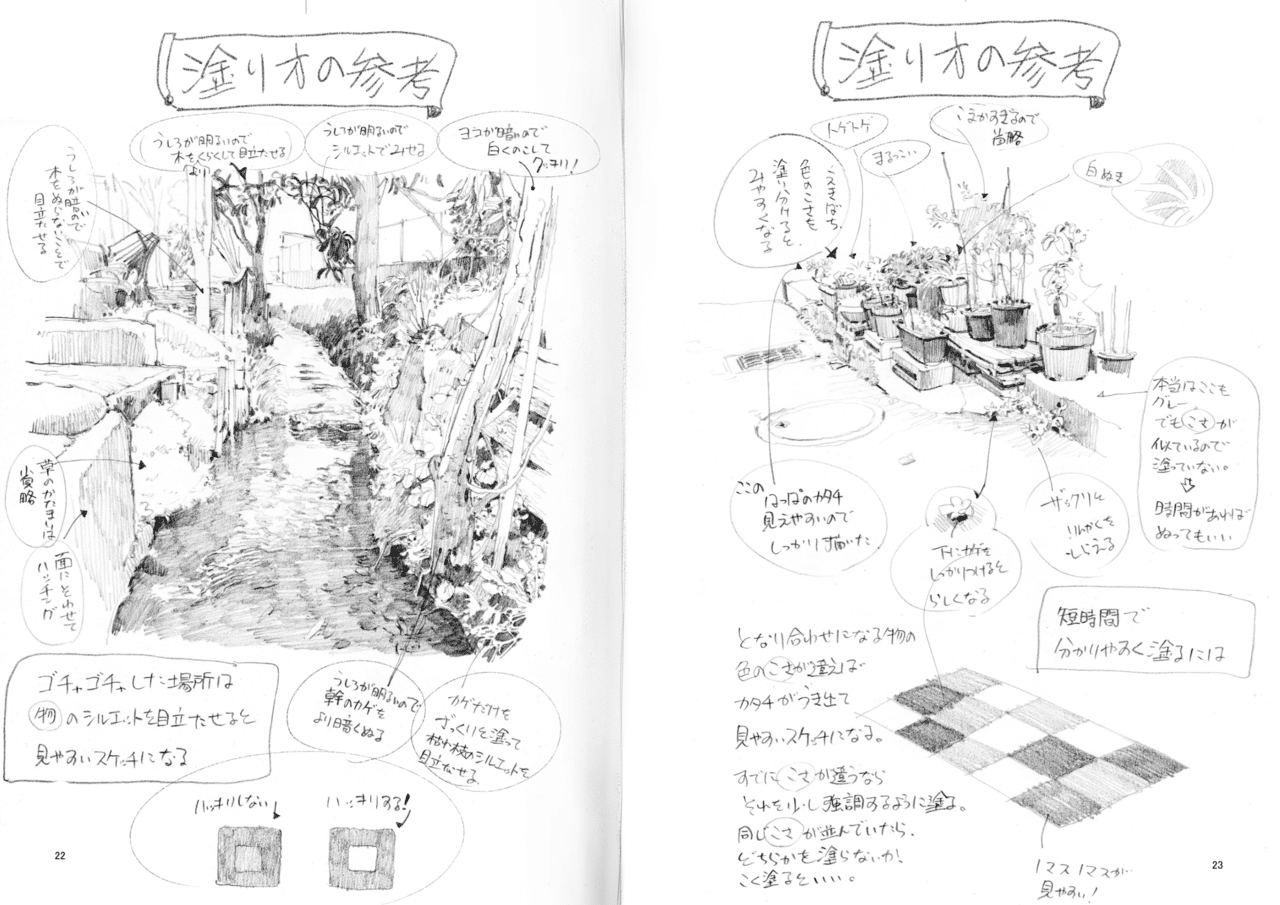 塗り方の参考
うしろが明るいので
木をくらくして目立たせる
うしろが明るいので
シルエットでみせる
ヨコが暗いので
白くのこして
クッキリ！
うしろが暗いので
木をぬらないことで
目立たせる
草のかたまりは
省略
面にそわせて
ハッチング
ゴチャゴチャした場所は
物のシルエットを目立たせると
見やすいスケッチになる
うしろが明るいので
幹のカゲを
より暗くぬる
カゲだけを
ざっくりと塗って
枝のシルエットを
目立たせる
ハッキリしない
ハッキリする！
22
塗り方の参考
トゲトゲ
まるっこい
こまかすぎるので
省略
白ぬき
うえきばち
色のこさも
塗り分けると、
みやすくなる
ここの
はっぱのカタチ
見えやすいので
しっかり描いた
下にカゲを
しっかりつけると
らしくなる
ザックリと
りんかくを
本当はここも
グレー
でもこさが
似ているので
塗っていない。
⇩
時間があれば
ぬってもいい
短時間で
分かりやすく塗るには
となり合わせになる物の
色のこさが違えば
カタチがうき出て
見やすいスケッチになる。
すでにこさが違うなら
それを少し強調するように塗る。
同じこさが並んでいたら、
どちらかを塗らないか！
こく塗るといい。
1マス1マスが…
見やすい！
23